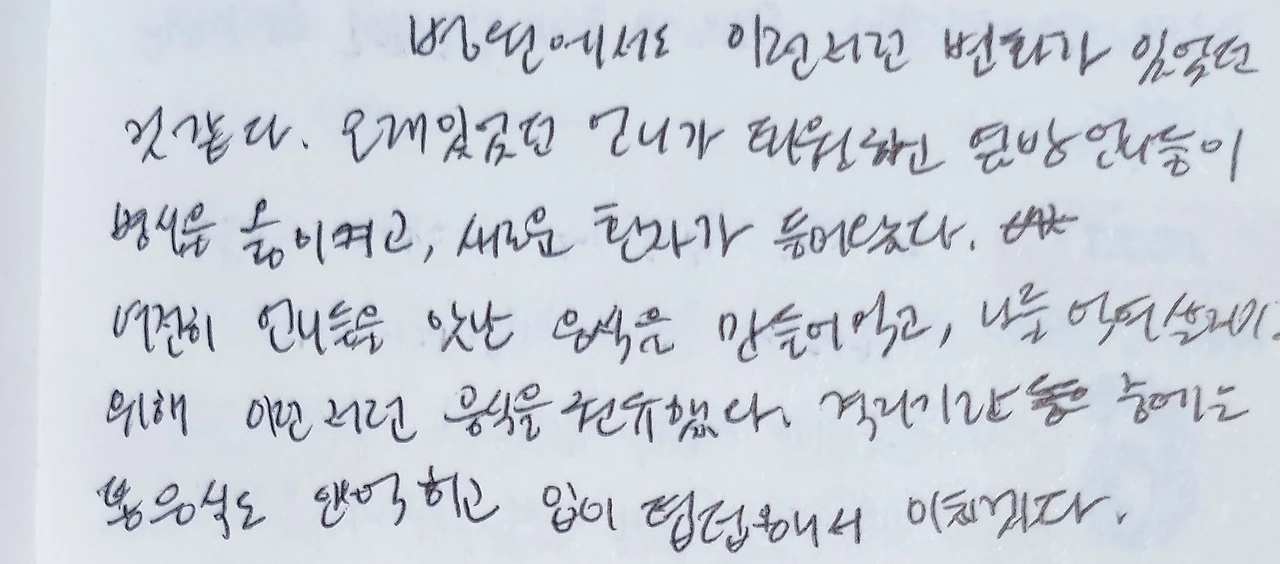 병원에서도 이런저런 변화가 있었던
것같다. 오래있었던 언니가 퇴원하고 옆방언니들이
병실을 옮이켜고, 새로운 환자가 들어왔다.
여전히 언니들은 맛난 음식을 만들어먹고, 나를 먹여살리기
위해 이런저런 음식을 권유했다. 격리기간 중에는
통음식도 안먹히고 입이 텁텁해서